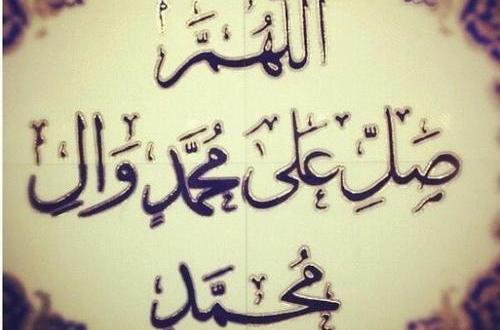 اللهُمَّ
صَلِّ عَلى مُحَمَّدٍ وَالِ
مُحَمَّد